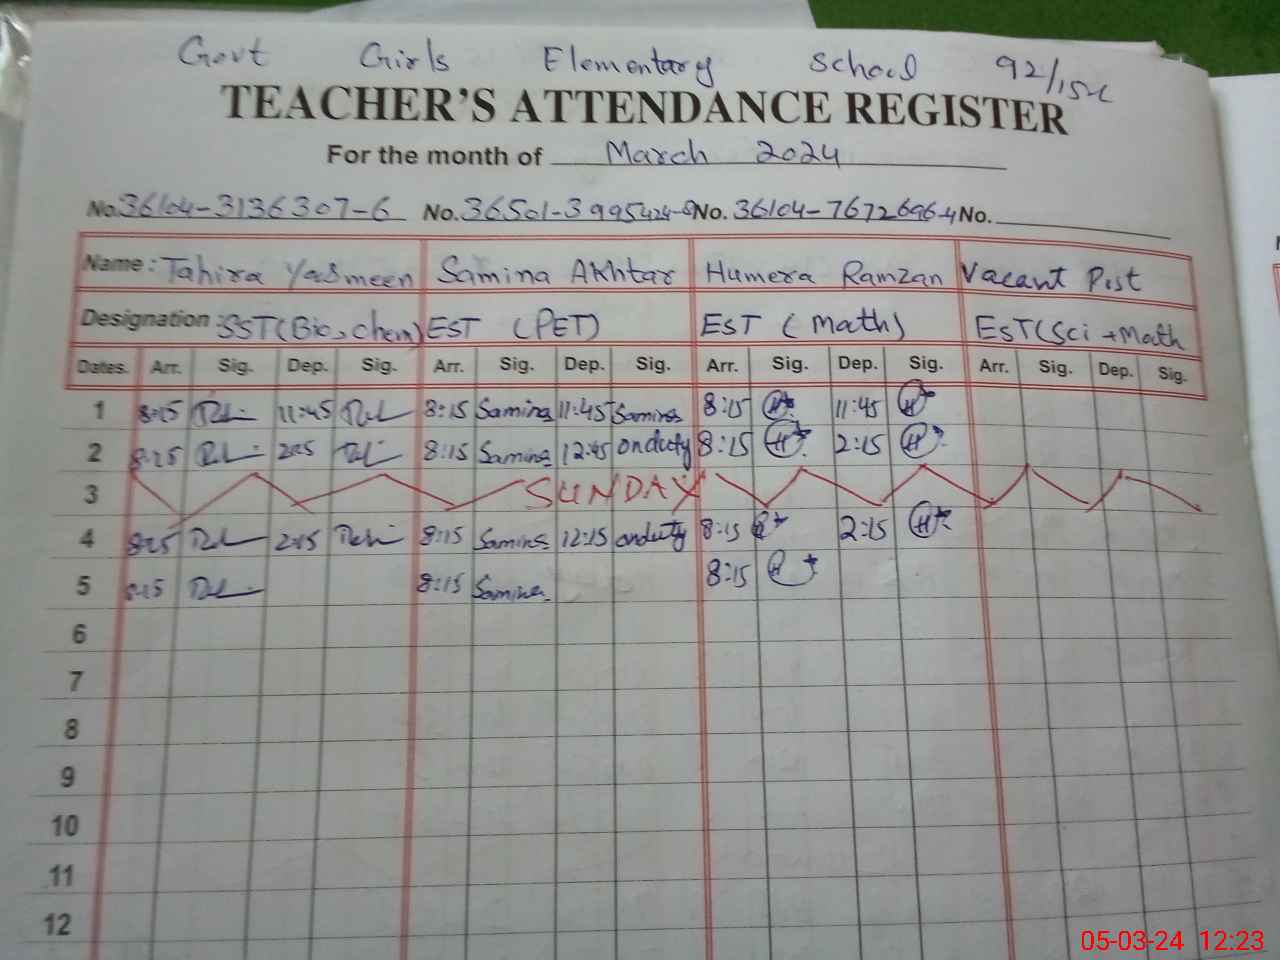 Govt Girls Elementary School 92/15-L
TEACHER'S ATTENDANCE REGISTER
For the month of March 2024
No. 36104-3136307-6 No. 36501-3995424- No. 36104-7672696-4 No.
Name: Tahira Yasmeen Samina Akhtar Humera Ramzan Vacant Post
Designation: SST(Bio, chem) EST (PET) EST (Math) EST(Sci + Math
Dates. Arr. Sig. Dep. Sig. Arr. Sig. Dep. Sig. Arr. Sig. Dep. Sig. Arr. Sig. Dep. Sig.
1 8:15 11:45 8:15 Samina 11:45 Samina 8:15 11:45
2 8:15 2:15 8:15 Samina 12:45 onduty 8:15 2:15
3 SUNDAY
4 8:15 2:15 8:15 Samina 12:15 onduty 8:15 2:15
5 8:15 8:15 Samina 8:15
6
7
8
9
10
11
12
05-03-24 12:23